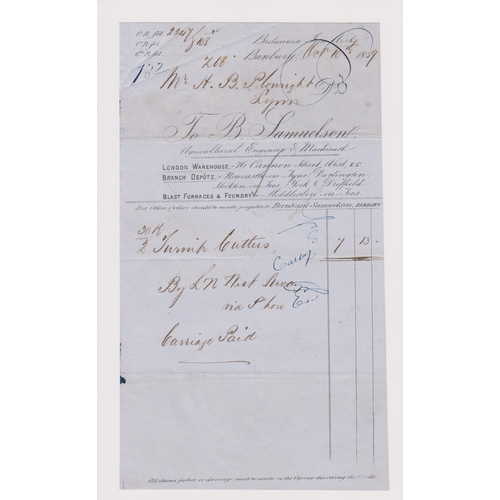 O.B. fol. 2247
C.B. fol.
C.B. fol.
Britannia Works
Banbury, Oct 1859
Mr. A. B. Plowright Dr
Lynn
To B. Samuelson,
Agricultural Engineer & Machinist
LONDON WAREHOUSE, 76 Cannon Street, West, E.C.
BRANCH DEPÔTS, Newcastle on Tyne, Darlington,
Stockton on Tees, York & Driffield
BLAST FURNACES & FOUNDRY, Middlesbro' on Tees
Post Office Orders should be made payable to Bernhard Samuelson, BANBURY
2 Turnip Cutters 7 13 -
By L N West
via
Carriage Paid
All claims for loss or damage must be made on the Carrier delivering the Goods